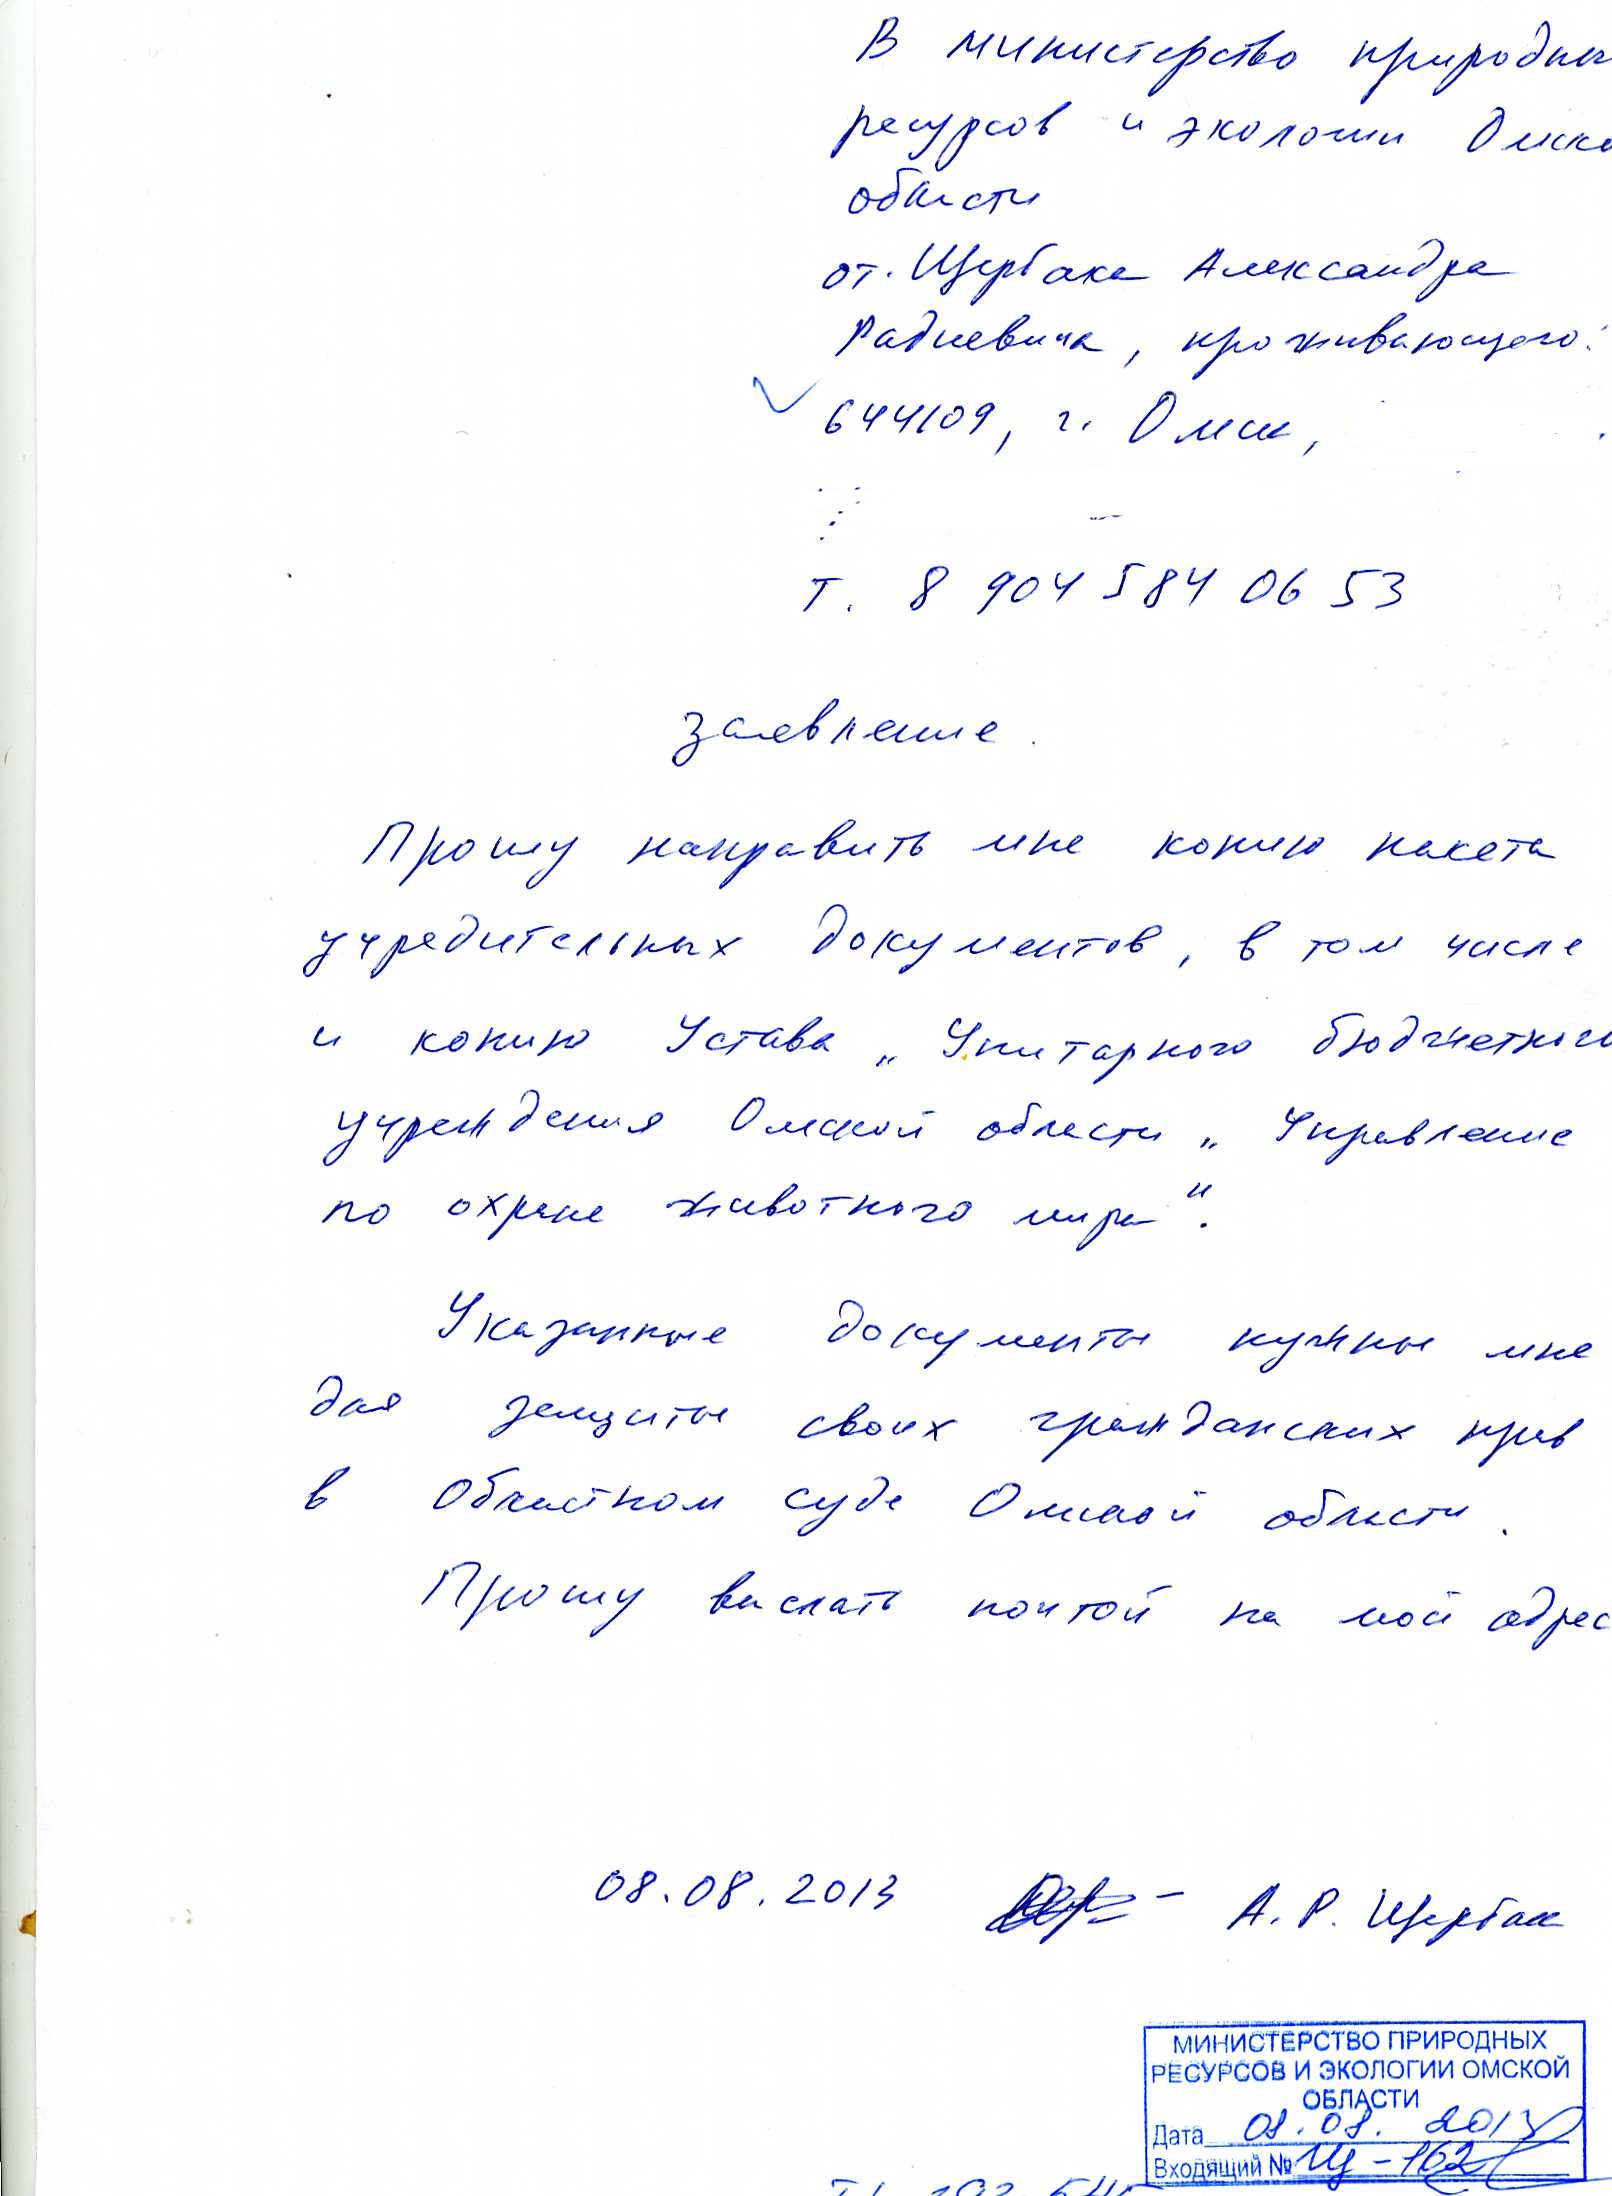 В министерство природных
ресурсов и экологии Омско
области
от. Щербака Александра
Радиевича, проживающего:
644109, г. Омск,
т. 8 904 584 06 53
заявление.
Прошу направить мне копию пакета
учредительных документов, в том числе
и копию Устава „Унитарного бюджетного
учреждения Омской области „Управление
по охране животного мира".
Указанные документы нужны мне
для защиты своих гражданских прав
в Областном суде Омской области.
Прошу выслать почтой на мой адрес
08.08.2013 А. Р. Щербак
МИНИСТЕРСТВО ПРИРОДНЫХ
РЕСУРСОВ И ЭКОЛОГИИ ОМСКОЙ
ОБЛАСТИ
Дата 08.08. 2013
Входящий № Щ-162